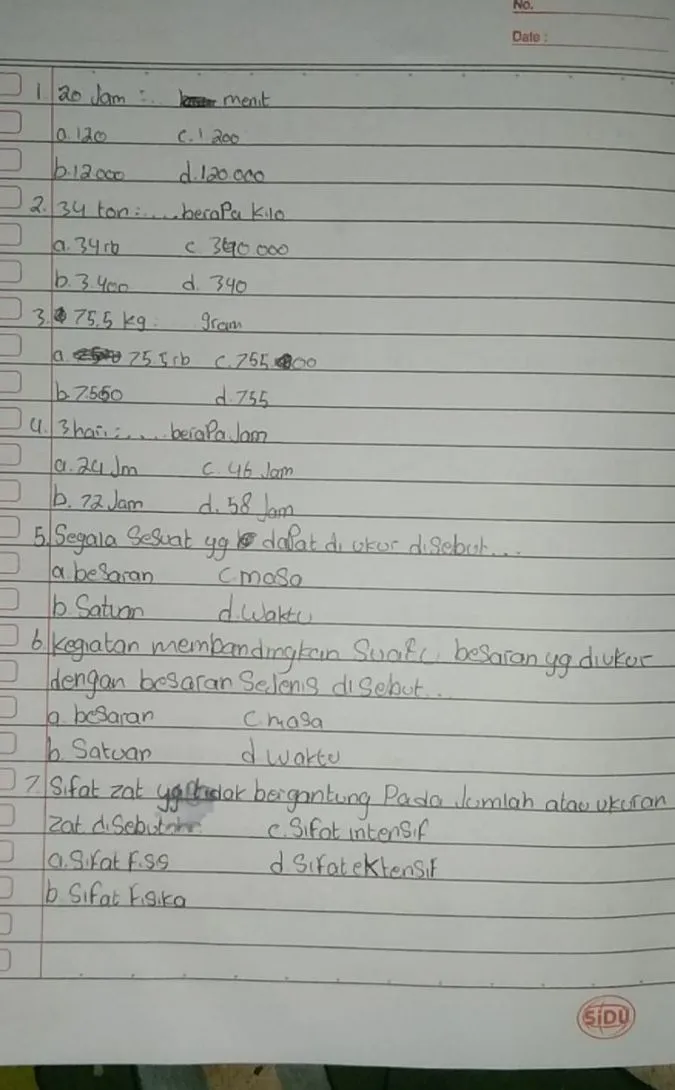 No.
Date :
1. 20 Jam : menit
a. 120 c. 1 200
b. 12 000 d. 120.000
2. 34 ton : .... beraPa kilo
a. 34 rb c 340 000
b. 3.400 d. 340
3. 75.5 kg : gram
a. 75.5 rb c. 755 000
b. 7.550 d. 755
4. 3 hari : .... beraPa Jam
a. 24 Jm c. 46 Jam
b. 72 Jam d. 58 Jam
5. Segala Sesuat yg daPat di ukur disebut...
a. besaran c masa
b. Satuan d. Waktu
6. kegiatan membandingkan Suatu besaran yg diukur
dengan besaran SeJenis disebut...
a. besaran c masa
b. Satuan d waktu
7. Sifat zat yg tidak bergantung Pada Jumlah atau ukuran
zat disebut c. Sifat intensif
a. Sifat Fiss d Sifat ektensif
b. Sifat Fisika
SIDU